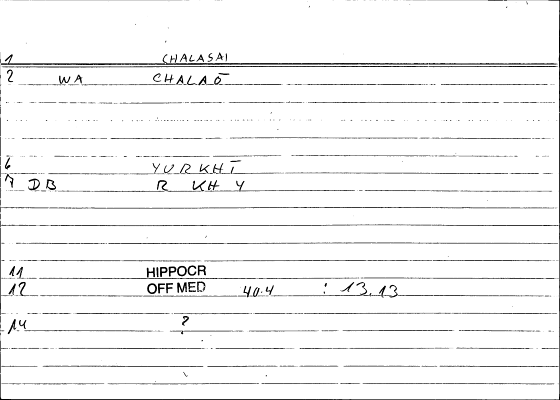 1 CHALASAI
2 WA CHALAŌ
6 YURKHĪ
7 DB R KH Y
11 HIPPOCR
12 OFF MED 40.4 : 13.13
14 ?